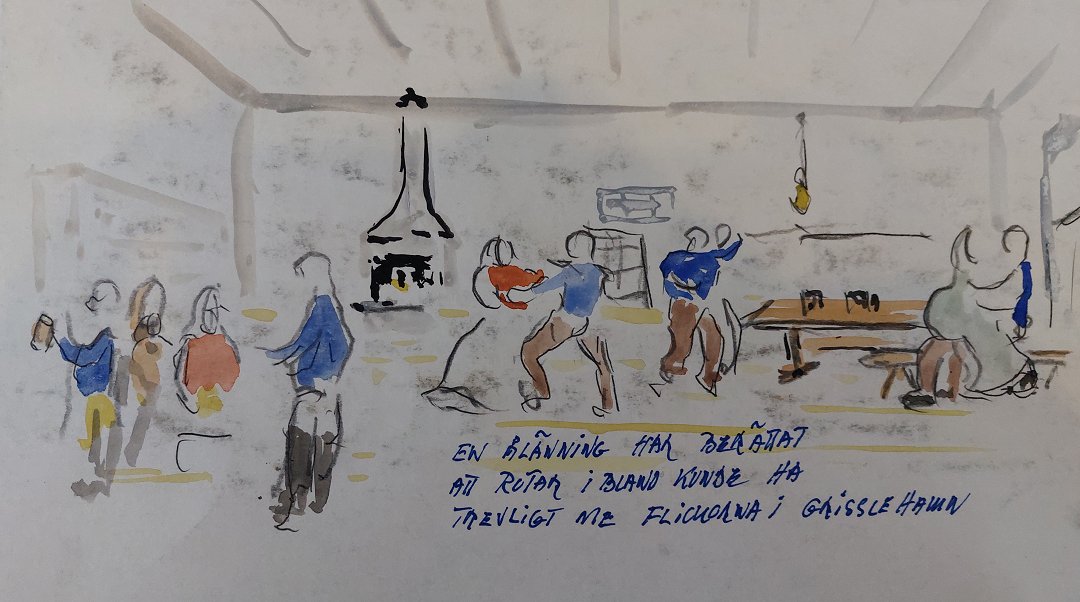 EN ÅLÄNNING HAR BERÄTTAT
ATT ROTAR IBLAND KUNDE HA
TREVLIGT ME FLICKORNA I GRISSLEHAMN